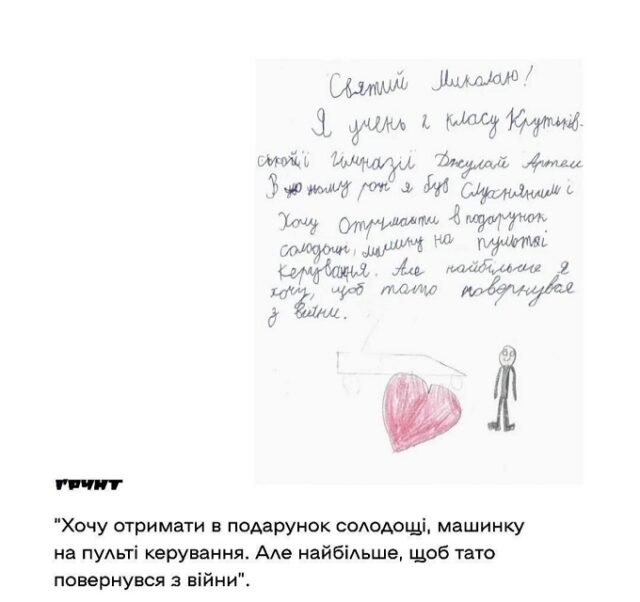 Святий Миколаю!
Я учень 2 класу Крутьків-
ської гімназії Джулай Артем
В цьому році я був Слухняним і
Хочу Отримати в подарунок
солодощі, машинку на пульті
Керування. Але найбільше я
хочу, щоб тато повернувся
з Війни.
ГРУНТ
"Хочу отримати в подарунок солодощі, машинку
на пульті керування. Але найбільше, щоб тато
повернувся з війни".